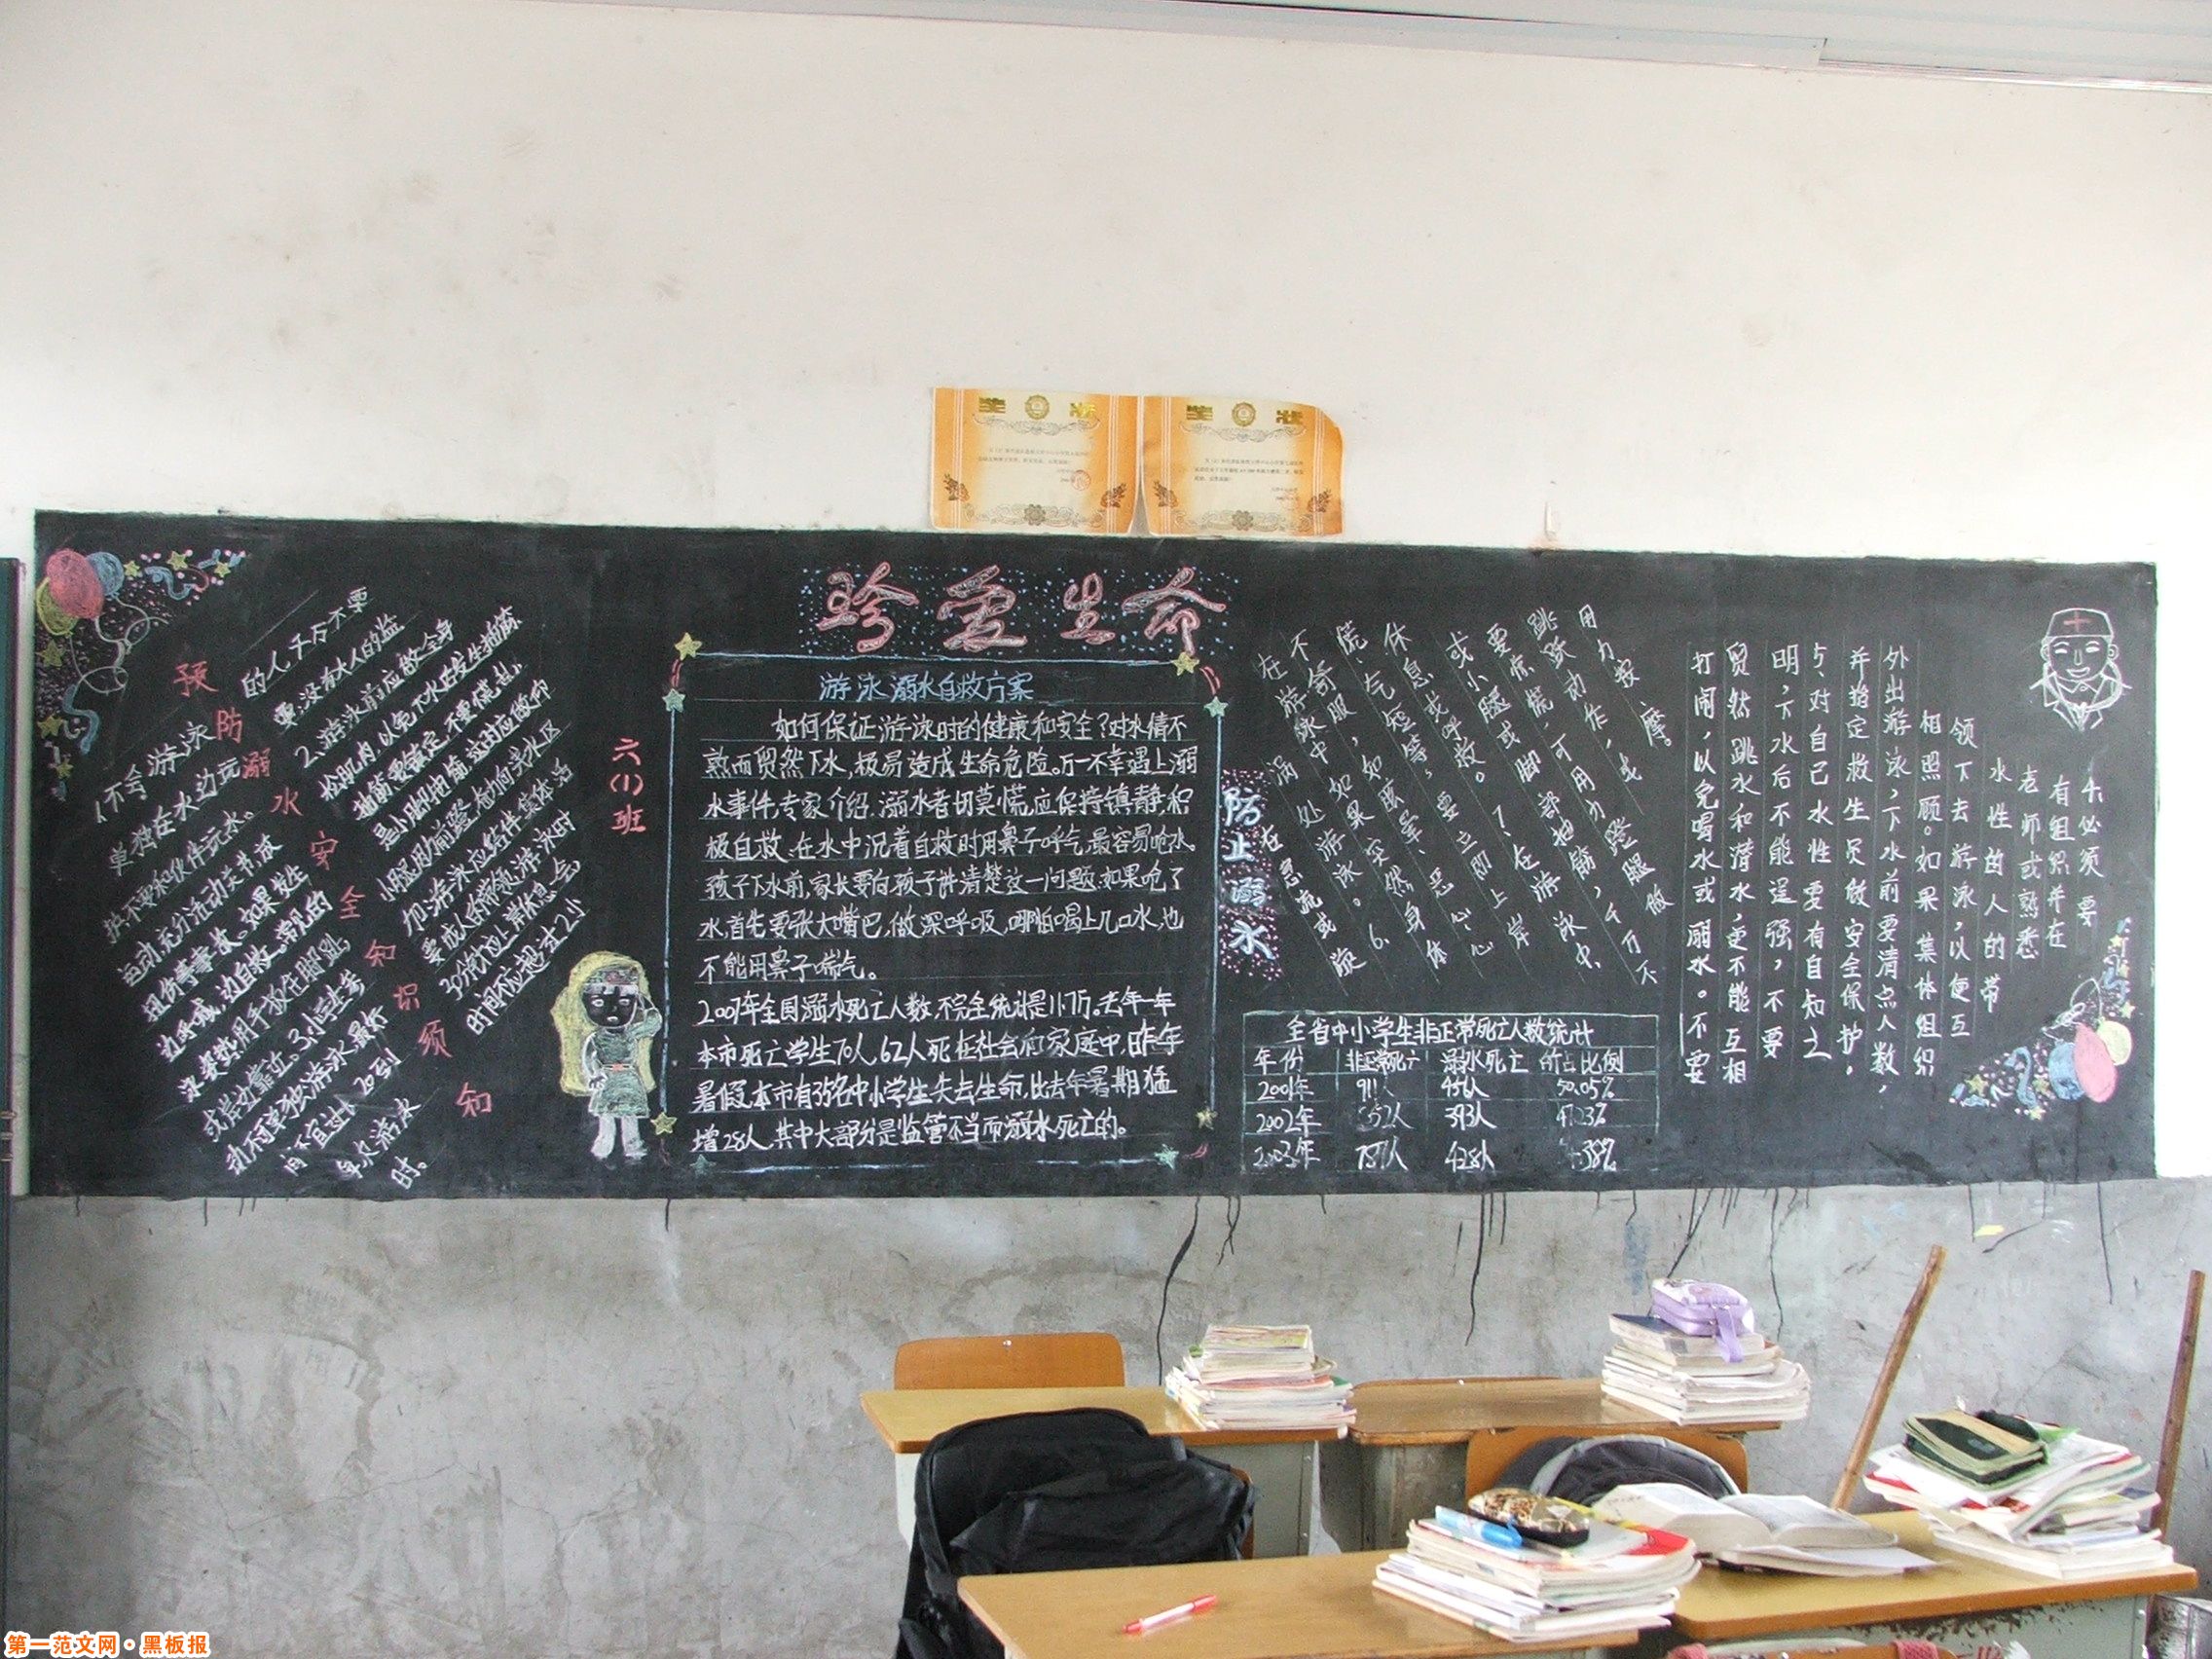 奖 状
奖 状
珍爱生命
预防溺水安全知识须知
1不会游泳
的人千万不要
单独在水边玩
耍,没有大人的监
护不要和伙伴玩水。
2、游泳前应做全身
运动,充分活动关节,放
松肌肉,以免下水后发生抽筋
扭伤等事故。如果发生
抽筋,要镇定,不要慌乱,
边呼喊,边自救。常见的
是小腿抽筋,这时应做仰
泳姿势,用手扳住脚趾,
小腿用力前蹬,奋力向浅水区
或岸边靠近。3.小学生考
要成人的带领,游泳时
时间不宜过长20到
30分钟应上岸休息一会
每次游泳
时间不应超过2小
时。
六(1)班
游泳溺水自救方案
如何保证游泳时的健康和安全?对水情不
熟而贸然下水,极易造成生命危险。万一不幸遇上溺
水事件,专家介绍,溺水者切莫慌,应保持镇静,积
极自救、在水中沉着自救时用鼻子呼气,最容易呛水。
孩子下水前,家长要向孩子讲清楚这一问题,如果呛了
水,首先要张大嘴巴,做深呼吸,哪怕喝上几口水,也
不能用鼻子喘气。
2007年全国溺水死亡人数,不完全统计是11.7万。去年一年
本市死亡学生70人,62人死在社会和家庭中,昨年
暑假,本市有35名中小学生失去生命,比去年暑期猛
增28人,其中大部分是监管不当而溺水死亡的。
防止溺水
4、必须要
有组织并在
老师或熟悉
水性的人的带
领下去游泳,以便互
相照顾。如果集体组织
外出游泳,下水前要清点人数,
并指定救生员做安全保护。
5、对自己水性要有自知之
明,下水后不能逞强,不要
贸然跳水和潜水,更不能互相
打闹,以免喝水或溺水。不要
在急流或漩
涡处游泳。6、
在游泳中如果突然身体
不舒服,如眩晕、恶心、心
慌、气短等,要立即上岸
休息或呼救。7、在游泳中,
或小腿或脚部抽筋,千万不
要惊慌,可用力蹬腿做
跳跃动作,或
用力按摩。
全省中小学生非正常死亡人数统计
年份 非正常死亡 溺水死亡 所占比例
2001年 911人 456人 50.05%
2002年 393人
2003年 781人 428人
第一范文网·黑板报